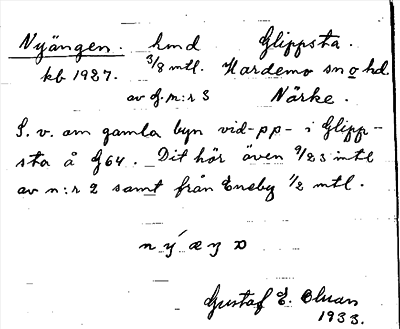 Nyängen. hmd Glippsta.
kb 1927. 3/8 mtl. Hardemo sn o hd.
av G.m:r 3 Närke.
S. v. om gamla byn vid -pp- i Glipp-
sta å G64. Dit hör även 9/23 mtl
av n:r 2 samt från Eneby 1/2 mtl.
Gustaf E.
1933.